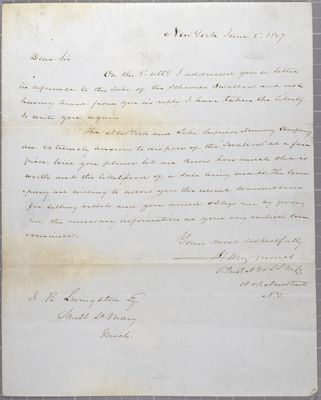 New York June 5th 1847
Dear Sir
On the 5th ulto I addressed you a letter
in reference to the sale of the Schooner Swallow and not
having heard from you in reply I have taken the liberty
to write you again.
The New York and Lake Superior Mining Company
are extremely anxious to dispose of the Swallow at a fair
price, will you please let me know how much she is
worth and the likelihood of a sale being made. The Com
pany are willing to allow you the usual Commission
for selling vessels and you would oblige me by giving
me the necessary information at your very earliest con
venience.
Yours most respectfully
N.Y.
J. R. Livingston Esq
Sault St Mary
Mich.